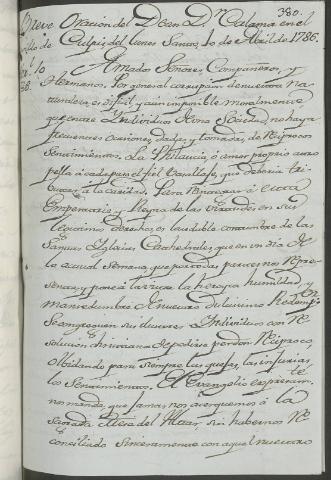 380.
Breve Oracion del Dean Dn. Calama en el
de Culpis del Lunes Santo, 10 de Abril de 1786.
Amados Señores, Compañeros, y
Hermanos. Por general corrupcion de nuestra na-
turaleza es dificil, y aun imposible moralmente
que entre Individuos de una Sociedad no haya
frequentes ocasiones, dadas y tomadas, de reciprocos
Sentimientos. La Philaucia, o amor proprio atro-
pella à cada paso el fiel Vasallage, que deberia tri-
butar à la caridad. Para reintegrar à esta
Emperatriz y Reyna de las Virtudes en sus
legitimos derechos, es laudable costumbre de las
Santas Iglesias Cathedrales, que en un dia de
la actual Semana, que por todas partes nos repre-
senta, y pone à la vista la heroyca humildad, y
mansedumbre de nuestro dulcisimo Redemptor
Se congreguen sus ilustres Individuos con re-
solucion christiana de pedirse perdon reciproco,
olbidando para siempre las quejas, las injurias,
los Sentimientos. El Evangelio expresamte.
nos manda, que jamas nos acerquemos à la
Sagrada Mesa del Altar sin habernos re-
conciliado sinceramente con aquel nuestro